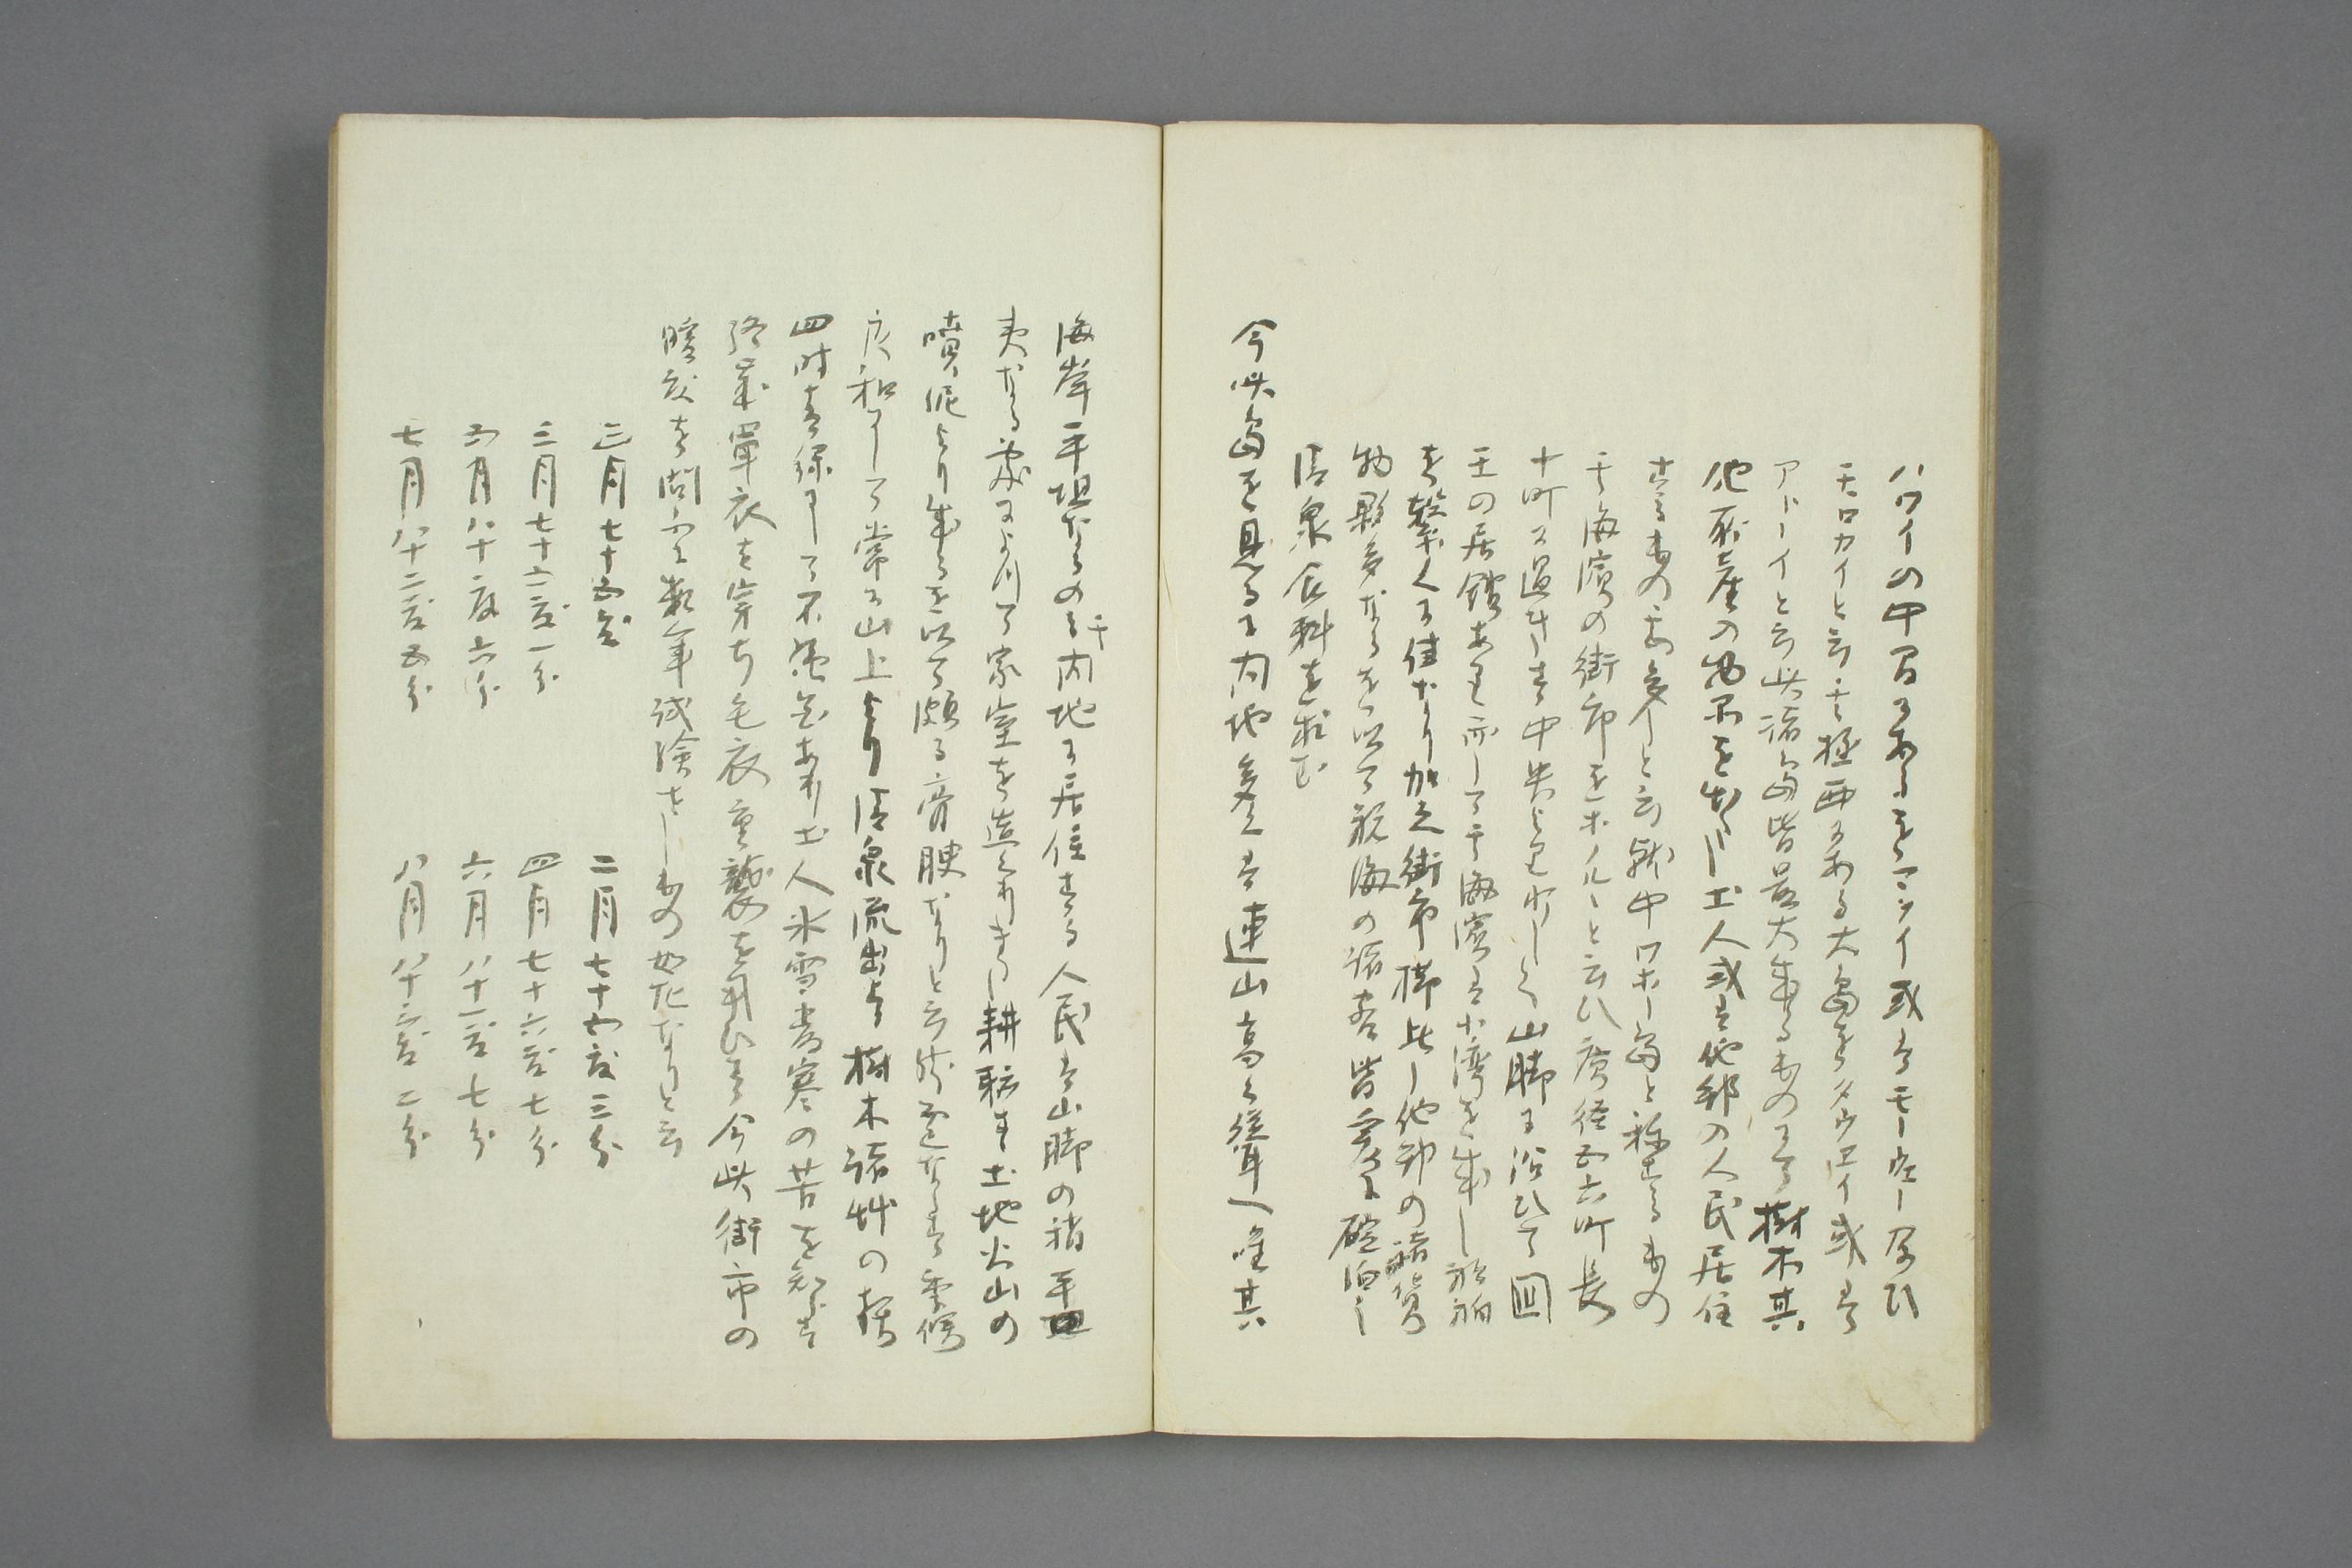 ハワイの中間にあるをマウイ或はモーウヰー及ひ
モロカイと云其極西にある大島をタウエイ或は
アトーイと云此諸島皆最大なるものにて樹木其
他所産の物品を出し土人或は他邦の人民居住
するもの尤多しと云就中ワホー島と称するもの
其海濱の街市をホノルヽと云ひ廣径五六町長
十町に過きす中央より少しく山脚に沿ひて国
王の居館あり而して其海濱は小湾を成し船舶
を繋くに佳なり加之街市櫛比し他邦の諸貨
物夥多なるを以て航海の諸客皆爰に碇泊し
清泉食料を求む
今此島を見るに内地多くは連山高く聳へ唯其
海岸平坦なるのみ内地に居住する人民は山脚の稍平
夷なる處によりて家室を造くりまた耕耘す土地火山の
噴泥より成るを以て頗る膏腴なりと云然而なるは季候
にして常に山上より清泉流出し樹木諸艸の
四時を保ちて不絶あり土人氷雪寒の苦を知らす
終歳單衣を穿ち毛衣重襲を用ひす今此街市の
暖度を問ふに数年試験せしもの如左なりと云
三月七十五度
二月七十四度三分
三月七十二度一分
四月七十六度七分
五月八十度六分
六月八十一度七分
七月八十二度五分
八月八十二度二分